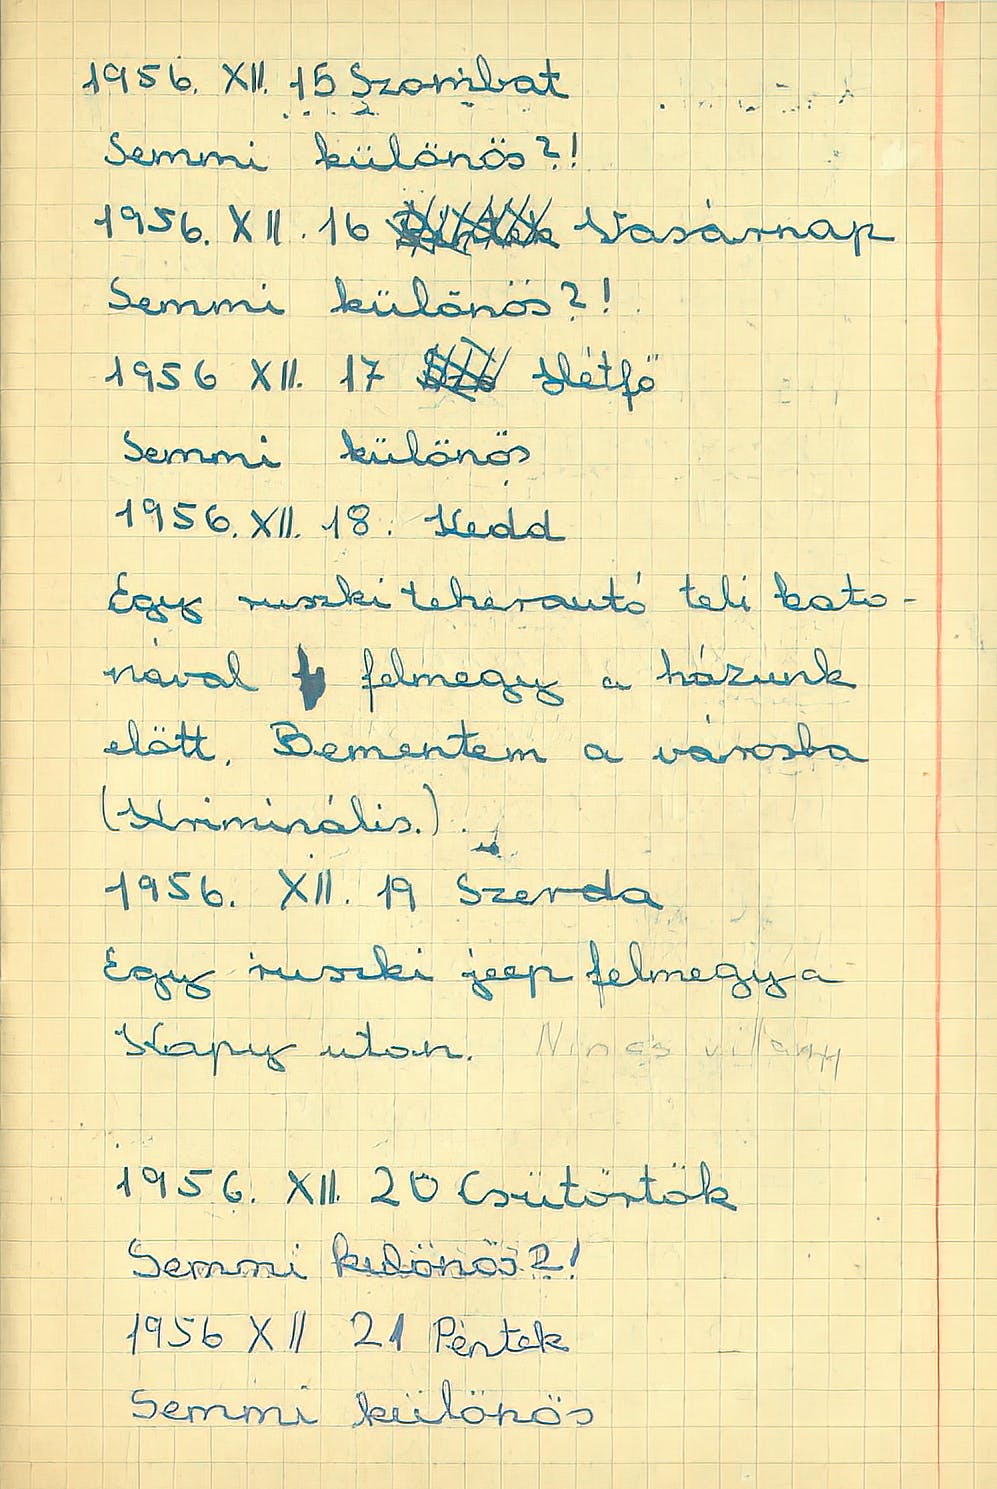 1956. XII. 15 Szombat
Semmi különös?!
1956. XII. 16 Vasárnap
Semmi különös?!
1956 XII. 17 Hétfő
Semmi különös
1956. XII. 18. Kedd
Egy ruszki teherautó teli kato-
nával felmegy a házunk
előtt. Bementem a városba
(Kriminális.).
1956. XII. 19 Szerda
Egy ruszki jeep felmegy a
Kapy uton. Nincs villany
1956. XII. 20 Csütörtök
Semmi különös?!
1956 XII 21 Péntek
Semmi különös